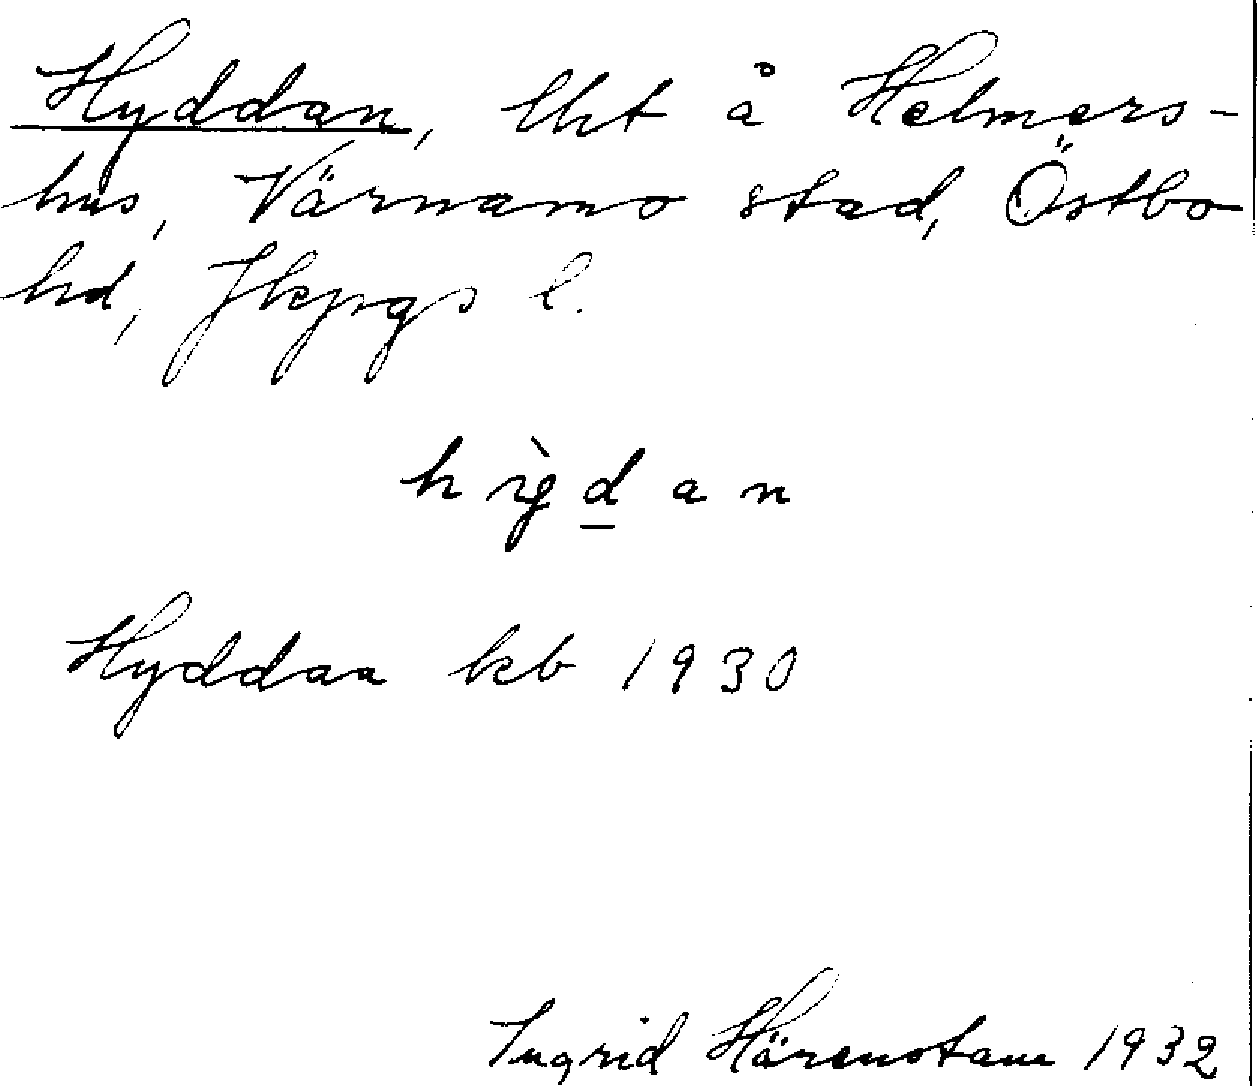 Hyddan, lht å Helmers-
hus, Värnamo stad, Östbo
hd, Jkpgs l.
hỳdan
Hyddan kb 1930
Ingrid Härenstam 1932